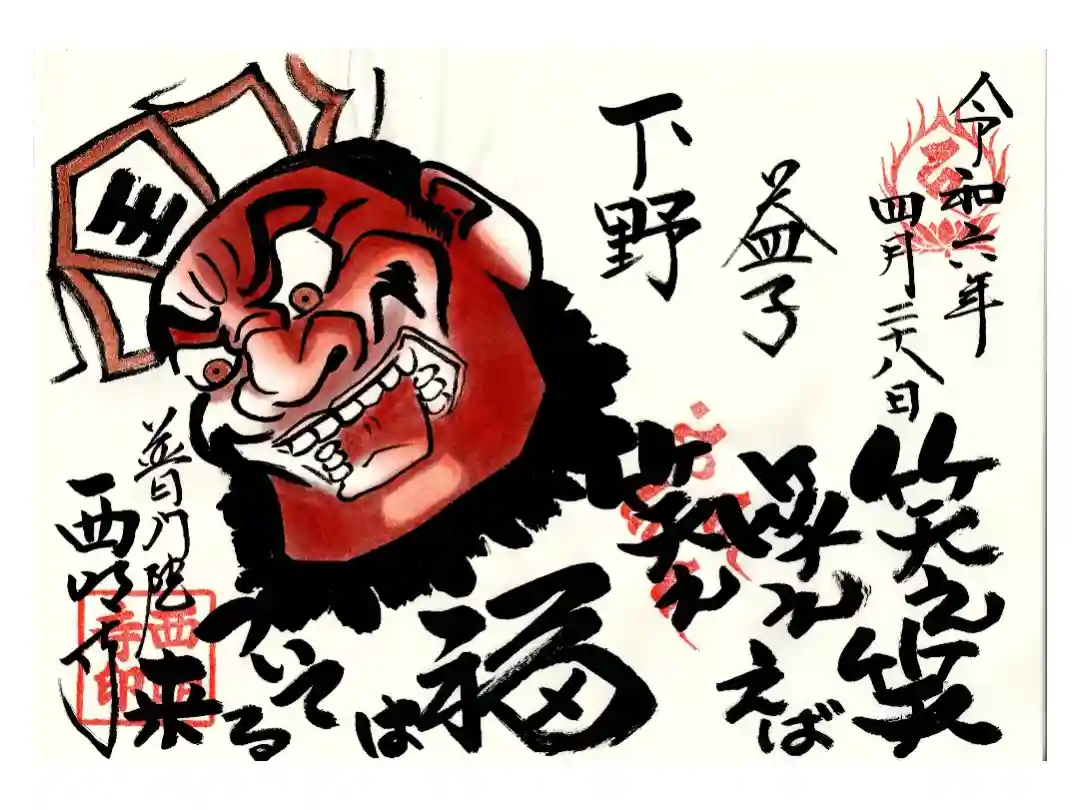 令和六年
四月二十八日
益子
下野
笑え
笑え
笑え
笑えば
福は
ついて
来る
王
普門院
西明寺
西明寺印